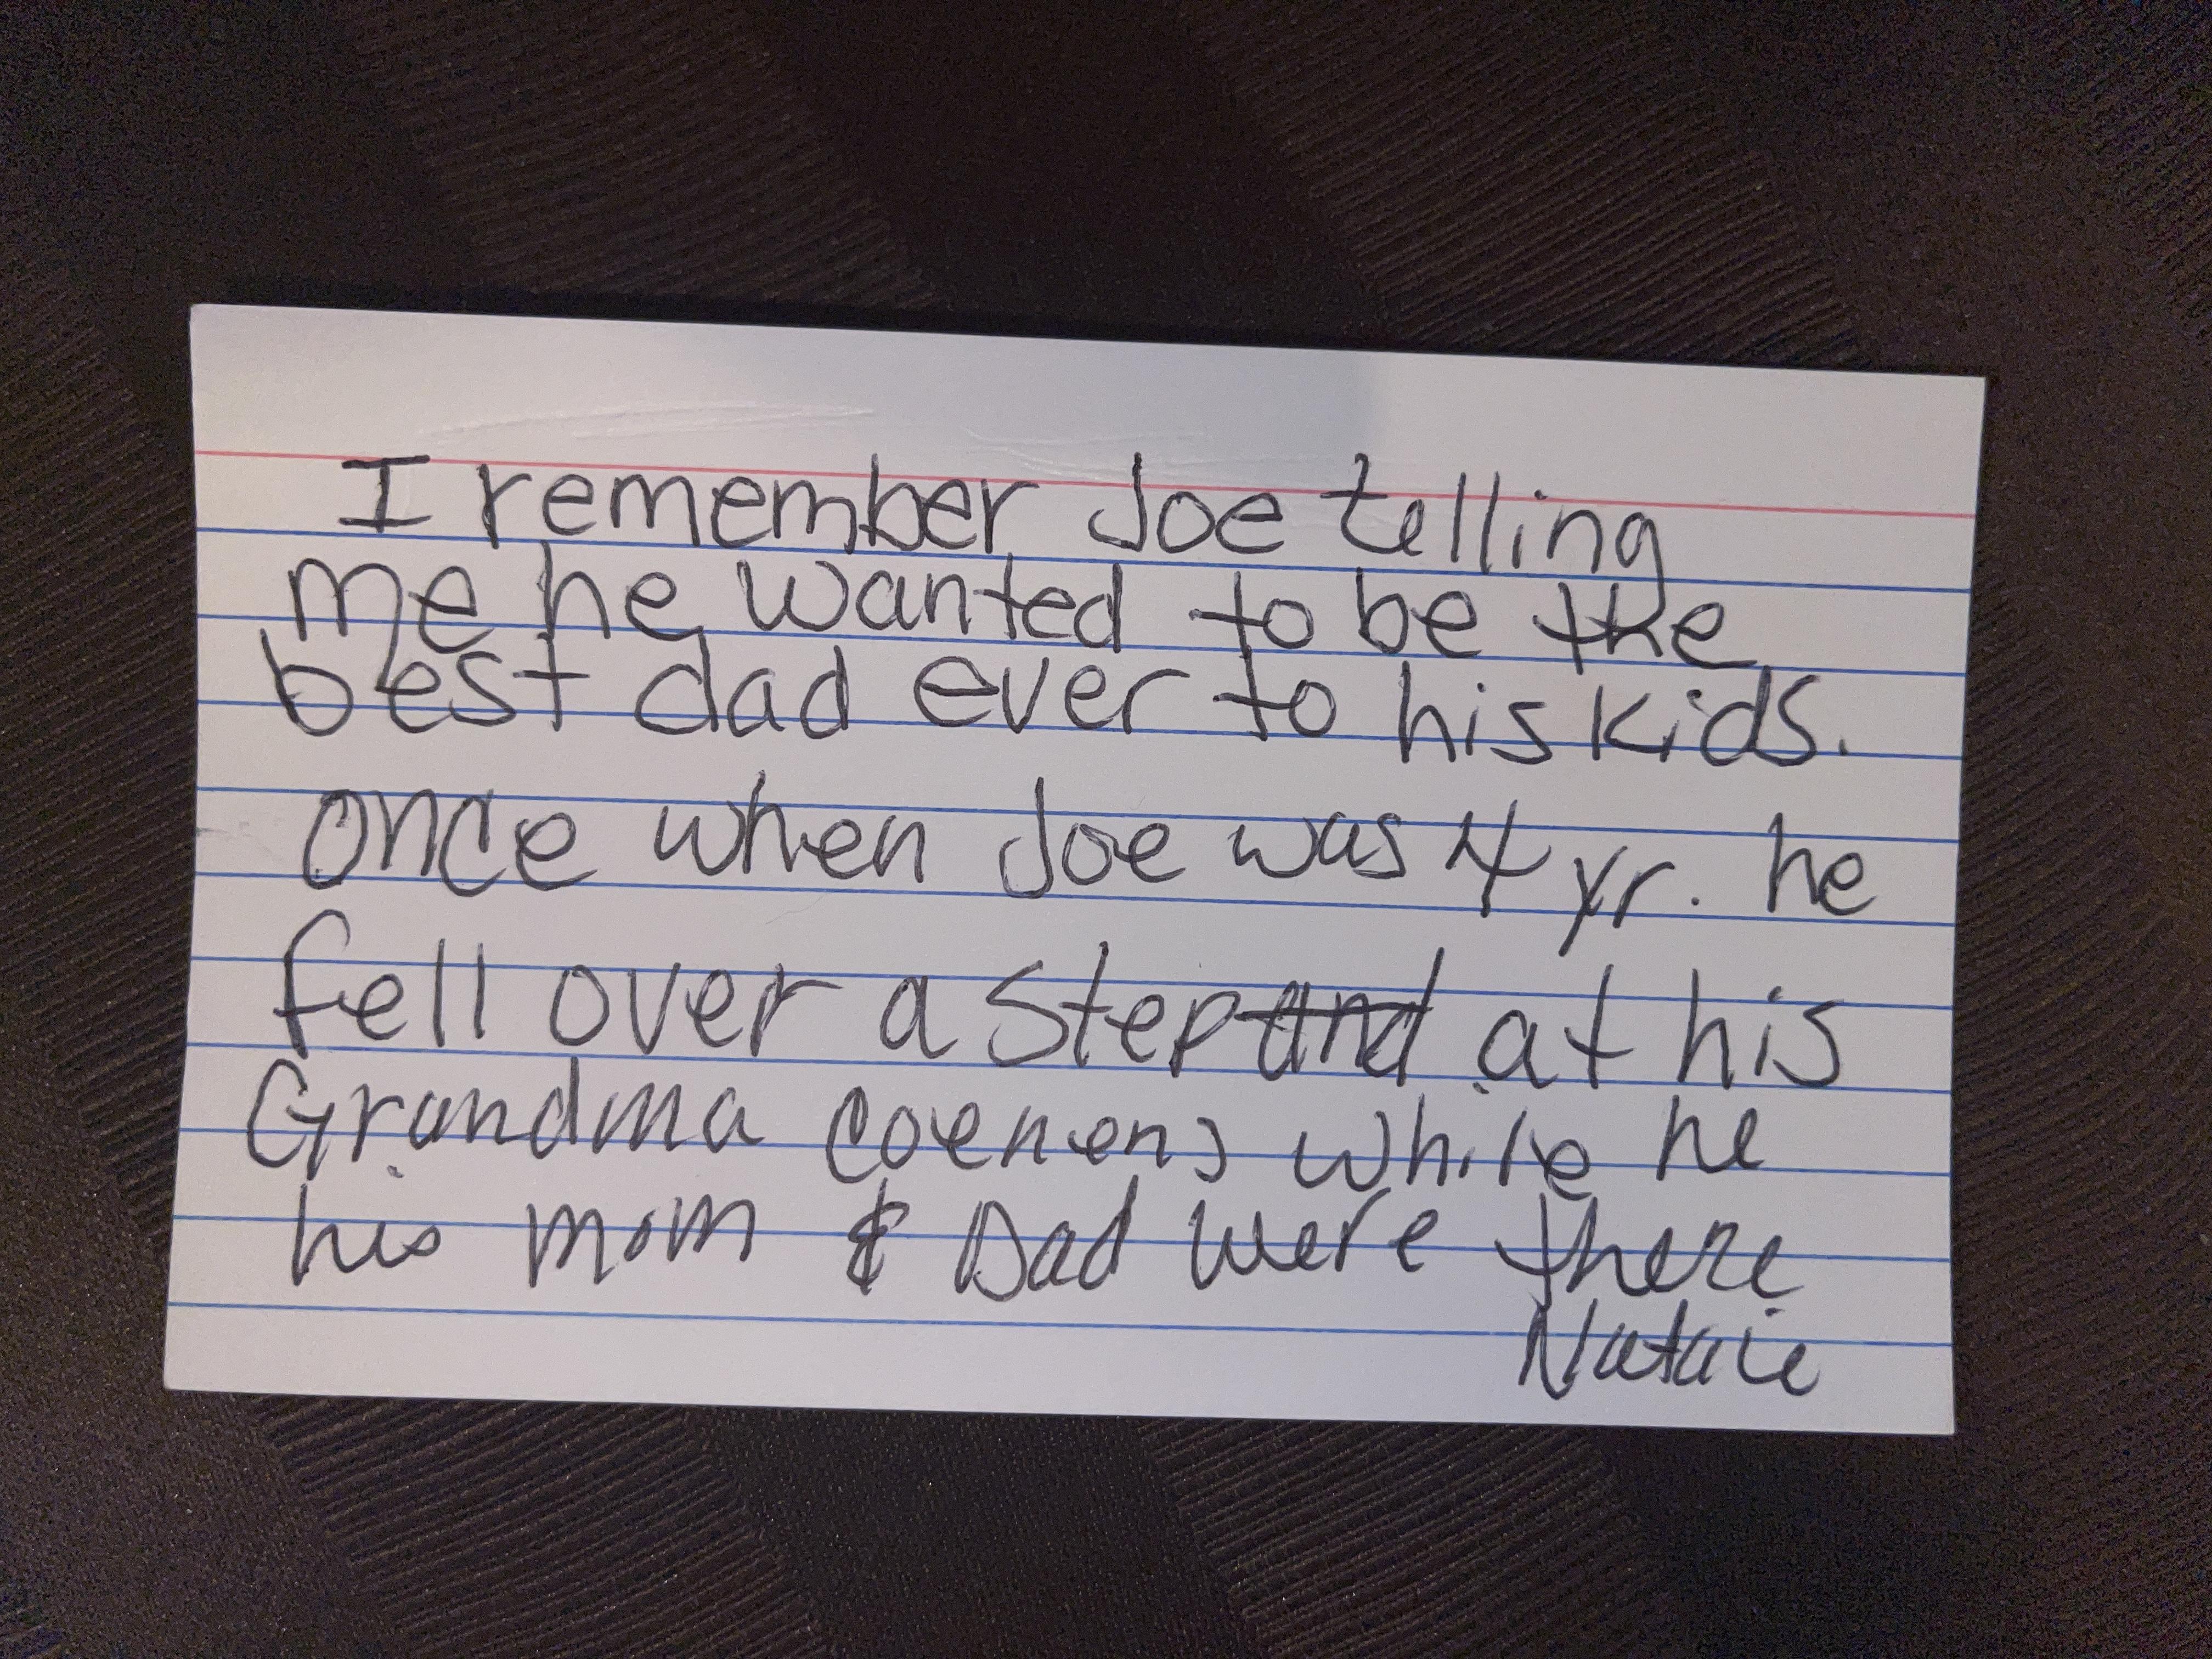 I remember Joe telling
me he wanted to be the
best dad ever to his kids.
once when Joe was 4 yr. he
fell over a step and at his
Grandma Coenens while he
his mom & Dad were there
Natalie